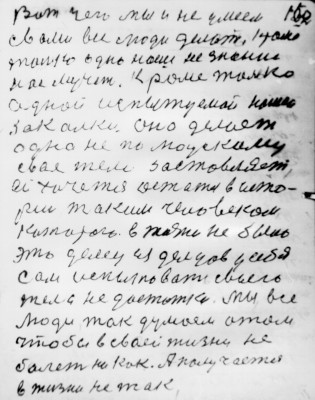 Вот чего мы и не умеем
свами все люди делат, кроме
только одно наши не знание
нас мучет. Кроме только
одной испытуемой нашей
закалки. Оно делает
одно не по мойскому
свае тело заставляет,
ей хочется остатся в исто-
рии таким человеком
которого в жизни не было
это делец из делцов у себя
сам испытовати своего
тела не достатки. Мы все
люди так думаем о том
чтобы в своей жизни не
болет никак. А получается
в жизни не так,